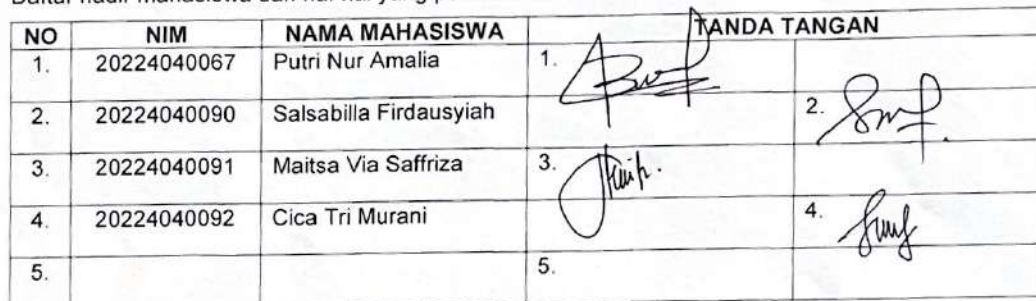 Daftar hadir mahasiswa dan hal-hal yang
NO NIM NAMA MAHASISWA TANDA TANGAN
1. 20224040067 Putri Nur Amalia 1.
2. 20224040090 Salsabilla Firdausyiah 2.
3. 20224040091 Maitsa Via Saffriza 3.
4. 20224040092 Cica Tri Murani 4.
5. 5.